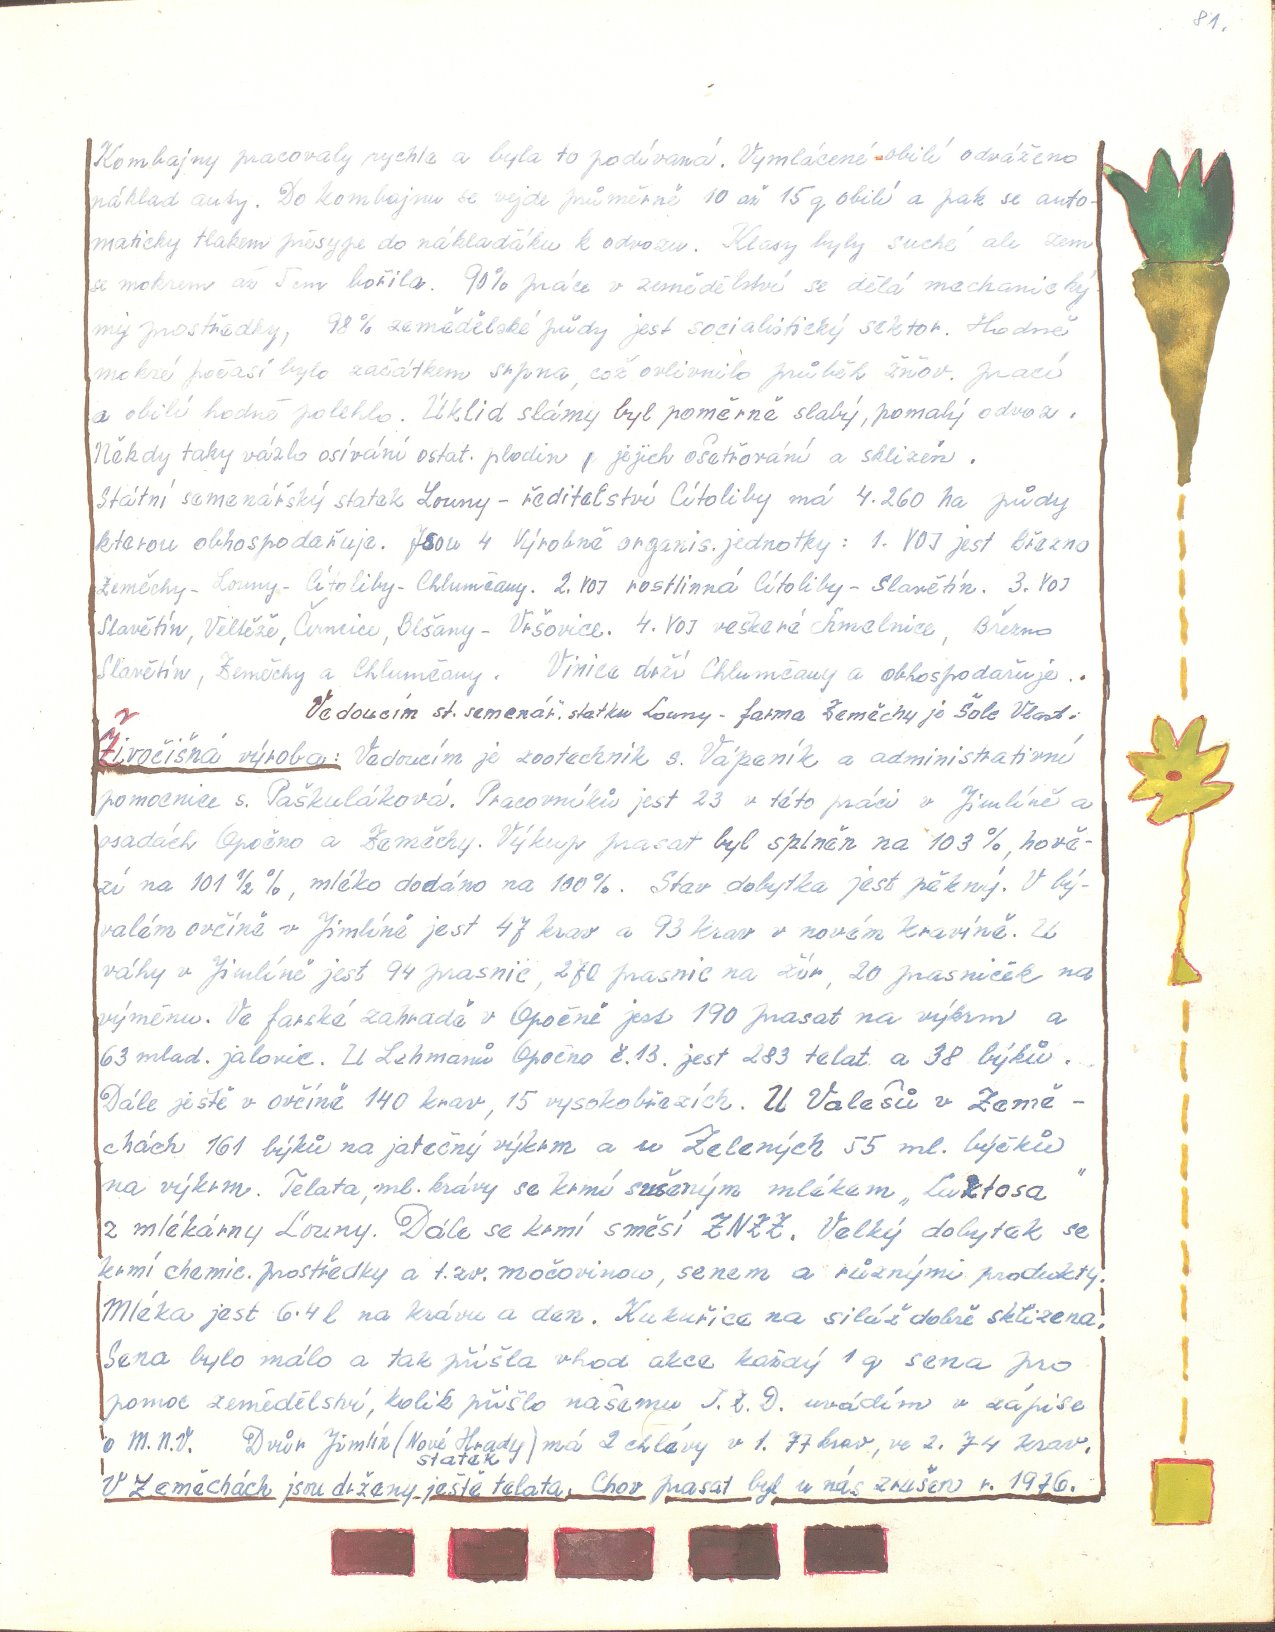 81.
Kombajny pracovaly rychle a byla to podívaná. Vymlácené obilí odváženo
náklad auty. Do kombajnu se vejde průměrně 10 až 15 q obilí a pak se auto-
maticky tlakem přesype do náklaďáku k odvozu. Klasy byly suché ale zem
se mokrem až sem bořila. 90% práce v zemědělství se dělá mechanický
mi prostředky, 98% zemědělské půdy jest socialistický sektor. Hodně
mokré počasí bylo začátkem srpna, což ovlivnilo průběh žňov. prací
a obilí hodně polehlo. Úklid slámy byl poměrně slabý, pomalý odvoz.
Někdy taky vázlo osívání ostat. plodin, jejich ošetřování a sklizeň.
Státní semenářský statek Louny - ředitelství Cítoliby má 4.260 ha půdy
kterou obhospodařuje. Jsou 4 Výrobně organis. jednotky: 1. VOJ jest Březno
Zeměchy - Louny - Cítoliby - Chlumčany. 2. VOJ rostlinná Cítoliby - Slavětín. 3. VOJ
Slavětín, Veltěže, Černčice, Blšany - Vršovice. 4. VOJ veškeré chmelnice, Březno
Slavětín, Zeměchy a Chlumčany. Vinice drží Chlumčany a obhospodařuje..
Vedoucím st. semenář. statku Louny - farma Zeměchy je Šole Vlast.
Živočišná výroba: Vedoucím je zootechnik s. Vápeník a administrativní
pomocnice s. Paškuláková. Pracovníků jest 23 v této práci v Jimlíně a
osadách Opočno a Zeměchy. Výkup prasat byl splněn na 103%, hově-
zí na 101 1/2%, mléko dodáno na 100%. Stav dobytka jest pěkný. V bý-
valém ovčíně v Jimlíně jest 47 krav a 93 krav v novém kravíně. U
váhy v Jimlíně jest 94 prasnic, 270 prasnic na žír, 20 prasniček na
výměnu. Ve farské zahradě v Opočně jest 190 prasat na výkrm a
63 mlad. jalovic. U Lehmanů Opočno č.13. jest 283 telat a 38 býků.
Dále ještě v ovčíně 140 krav, 15 vysokobřezích. U Valešů v Země-
chách 161 býků na jatečný výkrm a u Zelených 55 ml. býčků
na výkrm. Telata, ml. krávy se krmí sušeným mlékem „Luktosa"
z mlékárny Louny. Dále se krmí směsí ZNZZ. Velký dobytek se
krmí chemic. prostředky a t.zv. močovinou, senem a různými produkty.
Mléka jest 6·4 l na krávu a den. Kukuřice na siláž dobře sklizena.
Sena bylo málo a tak přišla vhod akce každý 1 q sena pro
pomoc zemědělství, kolik přišlo našemu J.Z.D. uvádím v zápise
o M.N.V. Dvůr Jimlín (Nové Hrady) má 2 chlévy v 1. 77 krav, ve 2. 74 krav.
statek
V Zeměchách jsou drženy ještě telata. Chov prasat byl u nás zrušen r. 1976.